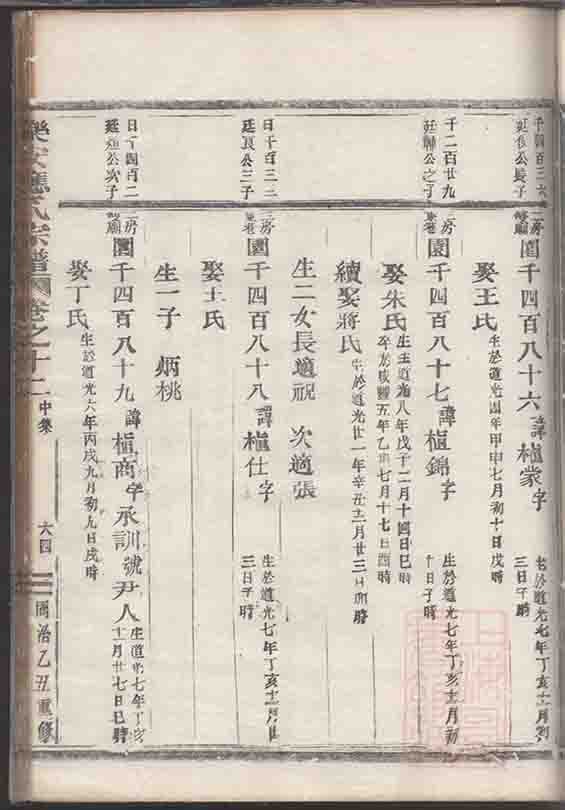 千四百三六
廷 公長子
二房
園千四百八十六 諱楨蒙字
生於道光七年丁亥十一月初
三日子時
娶王氏 生於道光四年甲申七月初十日戌時
千二百廿九
廷聯公之子
二房
園千四百八十七 諱楨錦字
生於道光七年丁亥十二月初
十日子時
娶朱氏 生道光八年戊子二月十四日巳時
卒於咸豐五年乙卯七月十七日酉時
續娶蔣氏 生於道光廿一年辛丑十二月廿三日卯時
生二女長適祝 次適張
日千百三三
廷良公三子
三房
園千四百八十八 諱楨仕字
生於道光七年丁亥十二月廿
三日子時
娶王氏
生一子 炳桃
日千四百二
廷 公次子
二房
園千四百八十九 諱楨商字承訓號尹人
生道光七年丁亥
十一月廿七日巳時
娶丁氏 生於道光六年丙戌九月初九日戌時
樂安應氏宗譜 卷之十二 中集 六四 同治乙丑重修